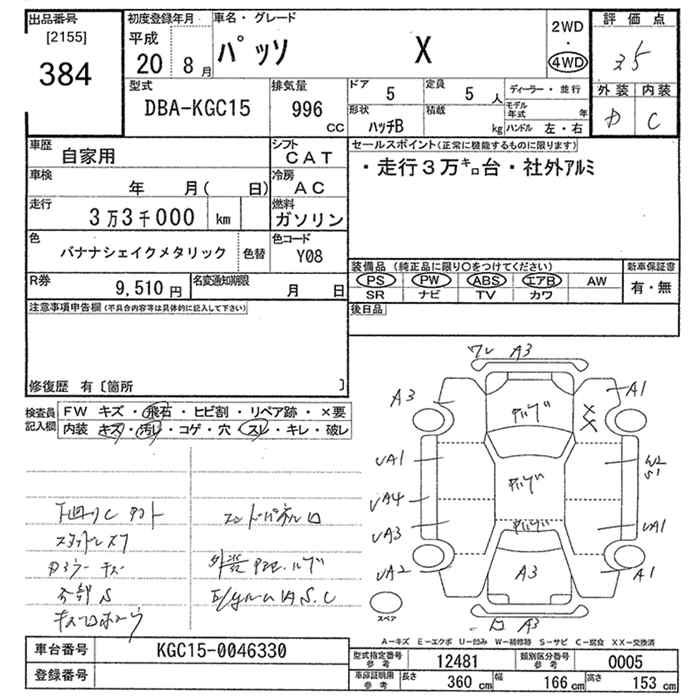 出品番号
[2155]
384
初度登録年月
平成
20 8月
車名・グレード
パッソ X
2WD
・
4WD
評価点
3.5
外装 内装
D C
型式
DBA-KGC15
排気量
996
cc
ドア
5
定員
5 人
ディーラー・並行
形状
ハッチB
積載
kg
モデル年式 年
ハンドル 左・右
車歴
自家用
シフト
CAT
車検
年 月( 日)
冷房
AC
走行
3万3千000 km
燃料
ガソリン
色
バナナシェイクメタリック
色替
色コード
Y08
R券
9,510円
名変通知期限
月 日
セールスポイント(正常に機能するものに限ります)
・走行3万㌔台・社外アルミ
装備品(純正品に限り○をつけてください)
PS PW ABS エアB AW
SR ナビ TV カワ
新車保証書
有・無
後日品
注意事項申告欄(不具合内容等は具体的に記入して下さい)
修復歴 有〔箇所 〕
検査員記入欄
FW キズ・飛石・ヒビ割・リペア跡・×要
内装 キズ・汚レ・コゲ・穴・スレ・キレ・破レ
ワレ A3
A3
A1
UA1
W2
S1
UA4
UA3
UA1
UA2
A3
A1
A3
スペア
A-キズ E-エクボ U-凹み W-補修跡 S-サビ C-腐食 XX-交換済
車台番号
KGC15-0046330
登録番号
型式指定番号
参考
12481
類別区分番号
参考
0005
車庫証明用
参考
長さ 360 cm
幅 166 cm
高さ 153 cm